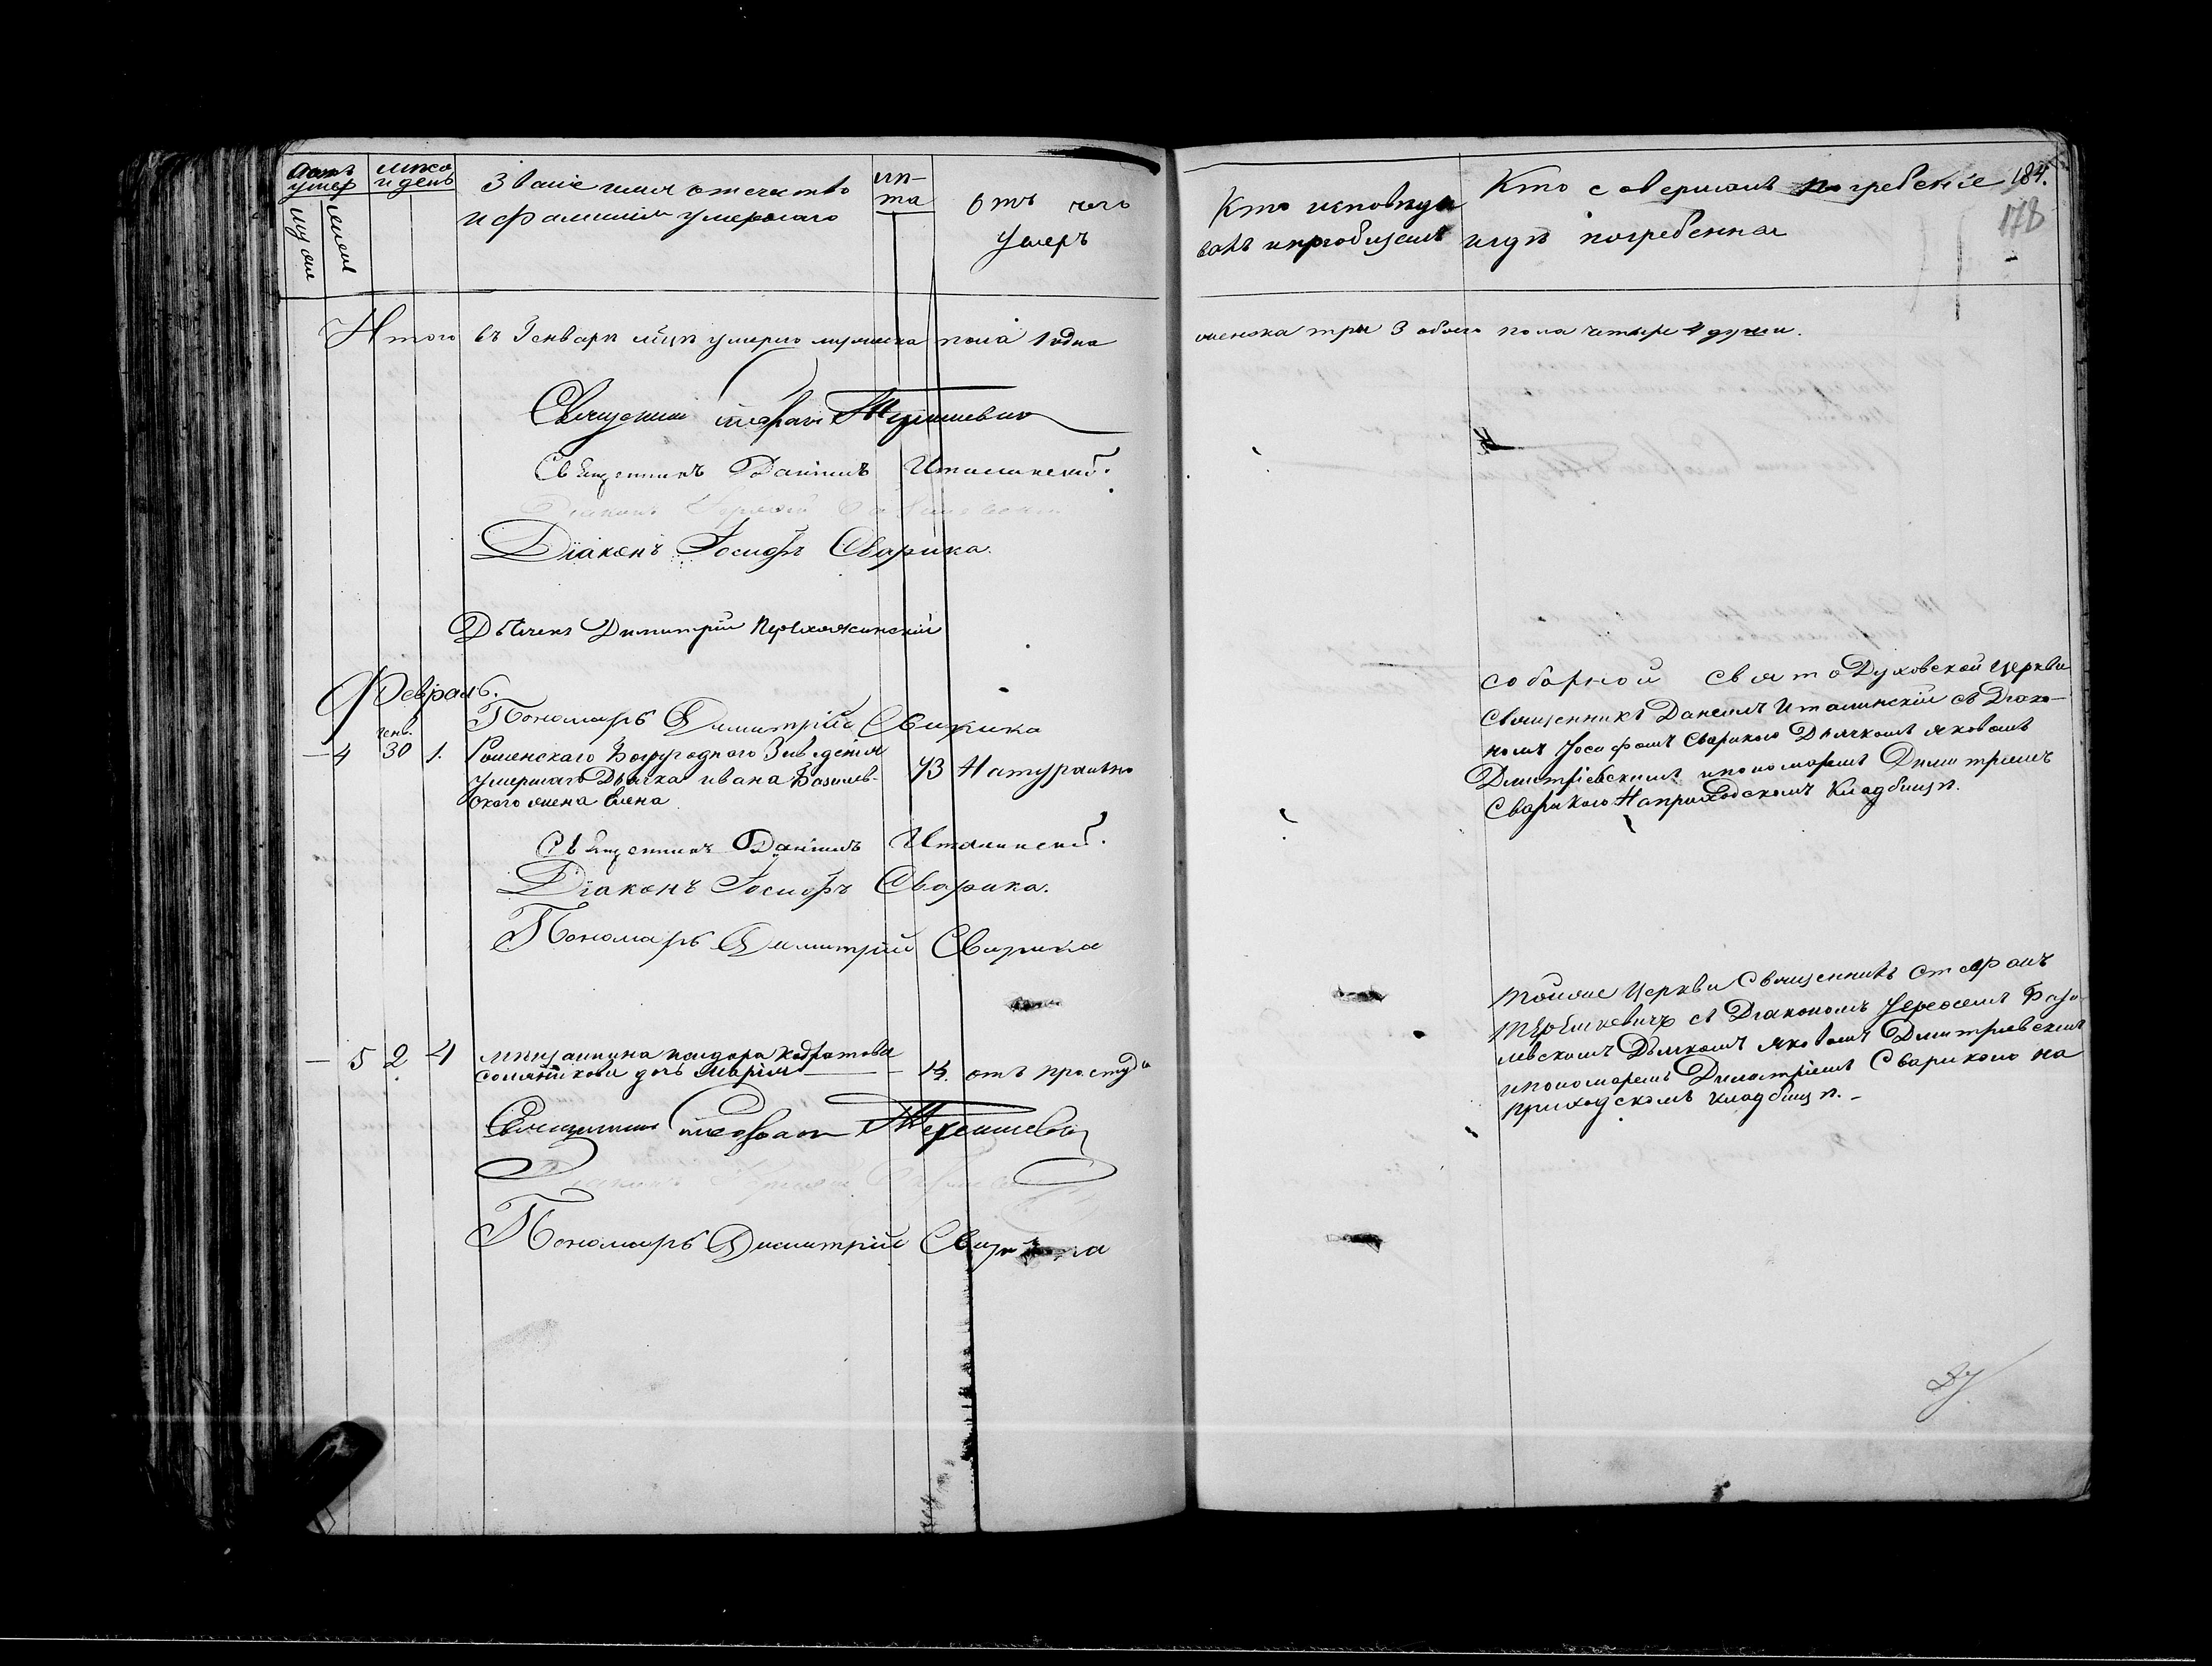 мѣсяцъ
и день
Званіе имя отечество
и фамилія умершаго
лѣ-
та
отъ чего
умеръ
Кто исповѣды
валъ и пріобщалъ
Кто совершалъ погребеніе
и гдѣ погребенна
184.
178
Итого въ Генварѣ мцѣ умерло мужеска пола 1 одна
женска три 3 обоего пола четыре 4 души.
Священникъ
Священникъ Даніилъ Италинскій.
Діаконъ
Діаконъ Іосифъ Сварика.
Дьячекъ Димитрій
Февраль.
Пономарь Димитрій Сварика
генв.
4 30 1. Роменскаго Богоугоднаго Заведенія
умершаго Дьячка Ивана Базилев-
скаго жена Елена
73 Натурально
соборной Святодуховской церкви
Священникъ Даніилъ Италинскій съ Діако-
номъ Іосифомъ Сварикою Дьячкомъ Яковомъ
Дмитріевскимъ и пономаремъ Димитріемъ
Сварикою На приходскомъ кладбищѣ.
Священникъ Даніилъ Италинскій.
Діаконъ Іосифъ Сварика.
Пономарь Димитрій Сварика
5 2 4 мѣщанина
дочь Марія
отъ простуды
тойже церкви Священникъ Стефанъ
съ Діакономъ Базі-
левскимъ Дьячкомъ Яковомъ Дмитріевскимъ
и пономаремъ Димитріемъ Сварикою на
приходскомъ кладбищѣ.
Священникъ Стефанъ
Діаконъ
Пономарь Димитрій Сварика